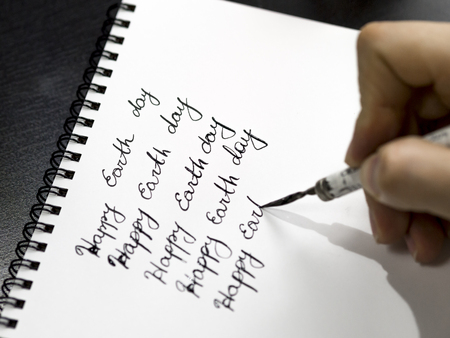 Happy Earth day
Happy Earth day
Happy Earth day
Happy Earth day
Happy Ear